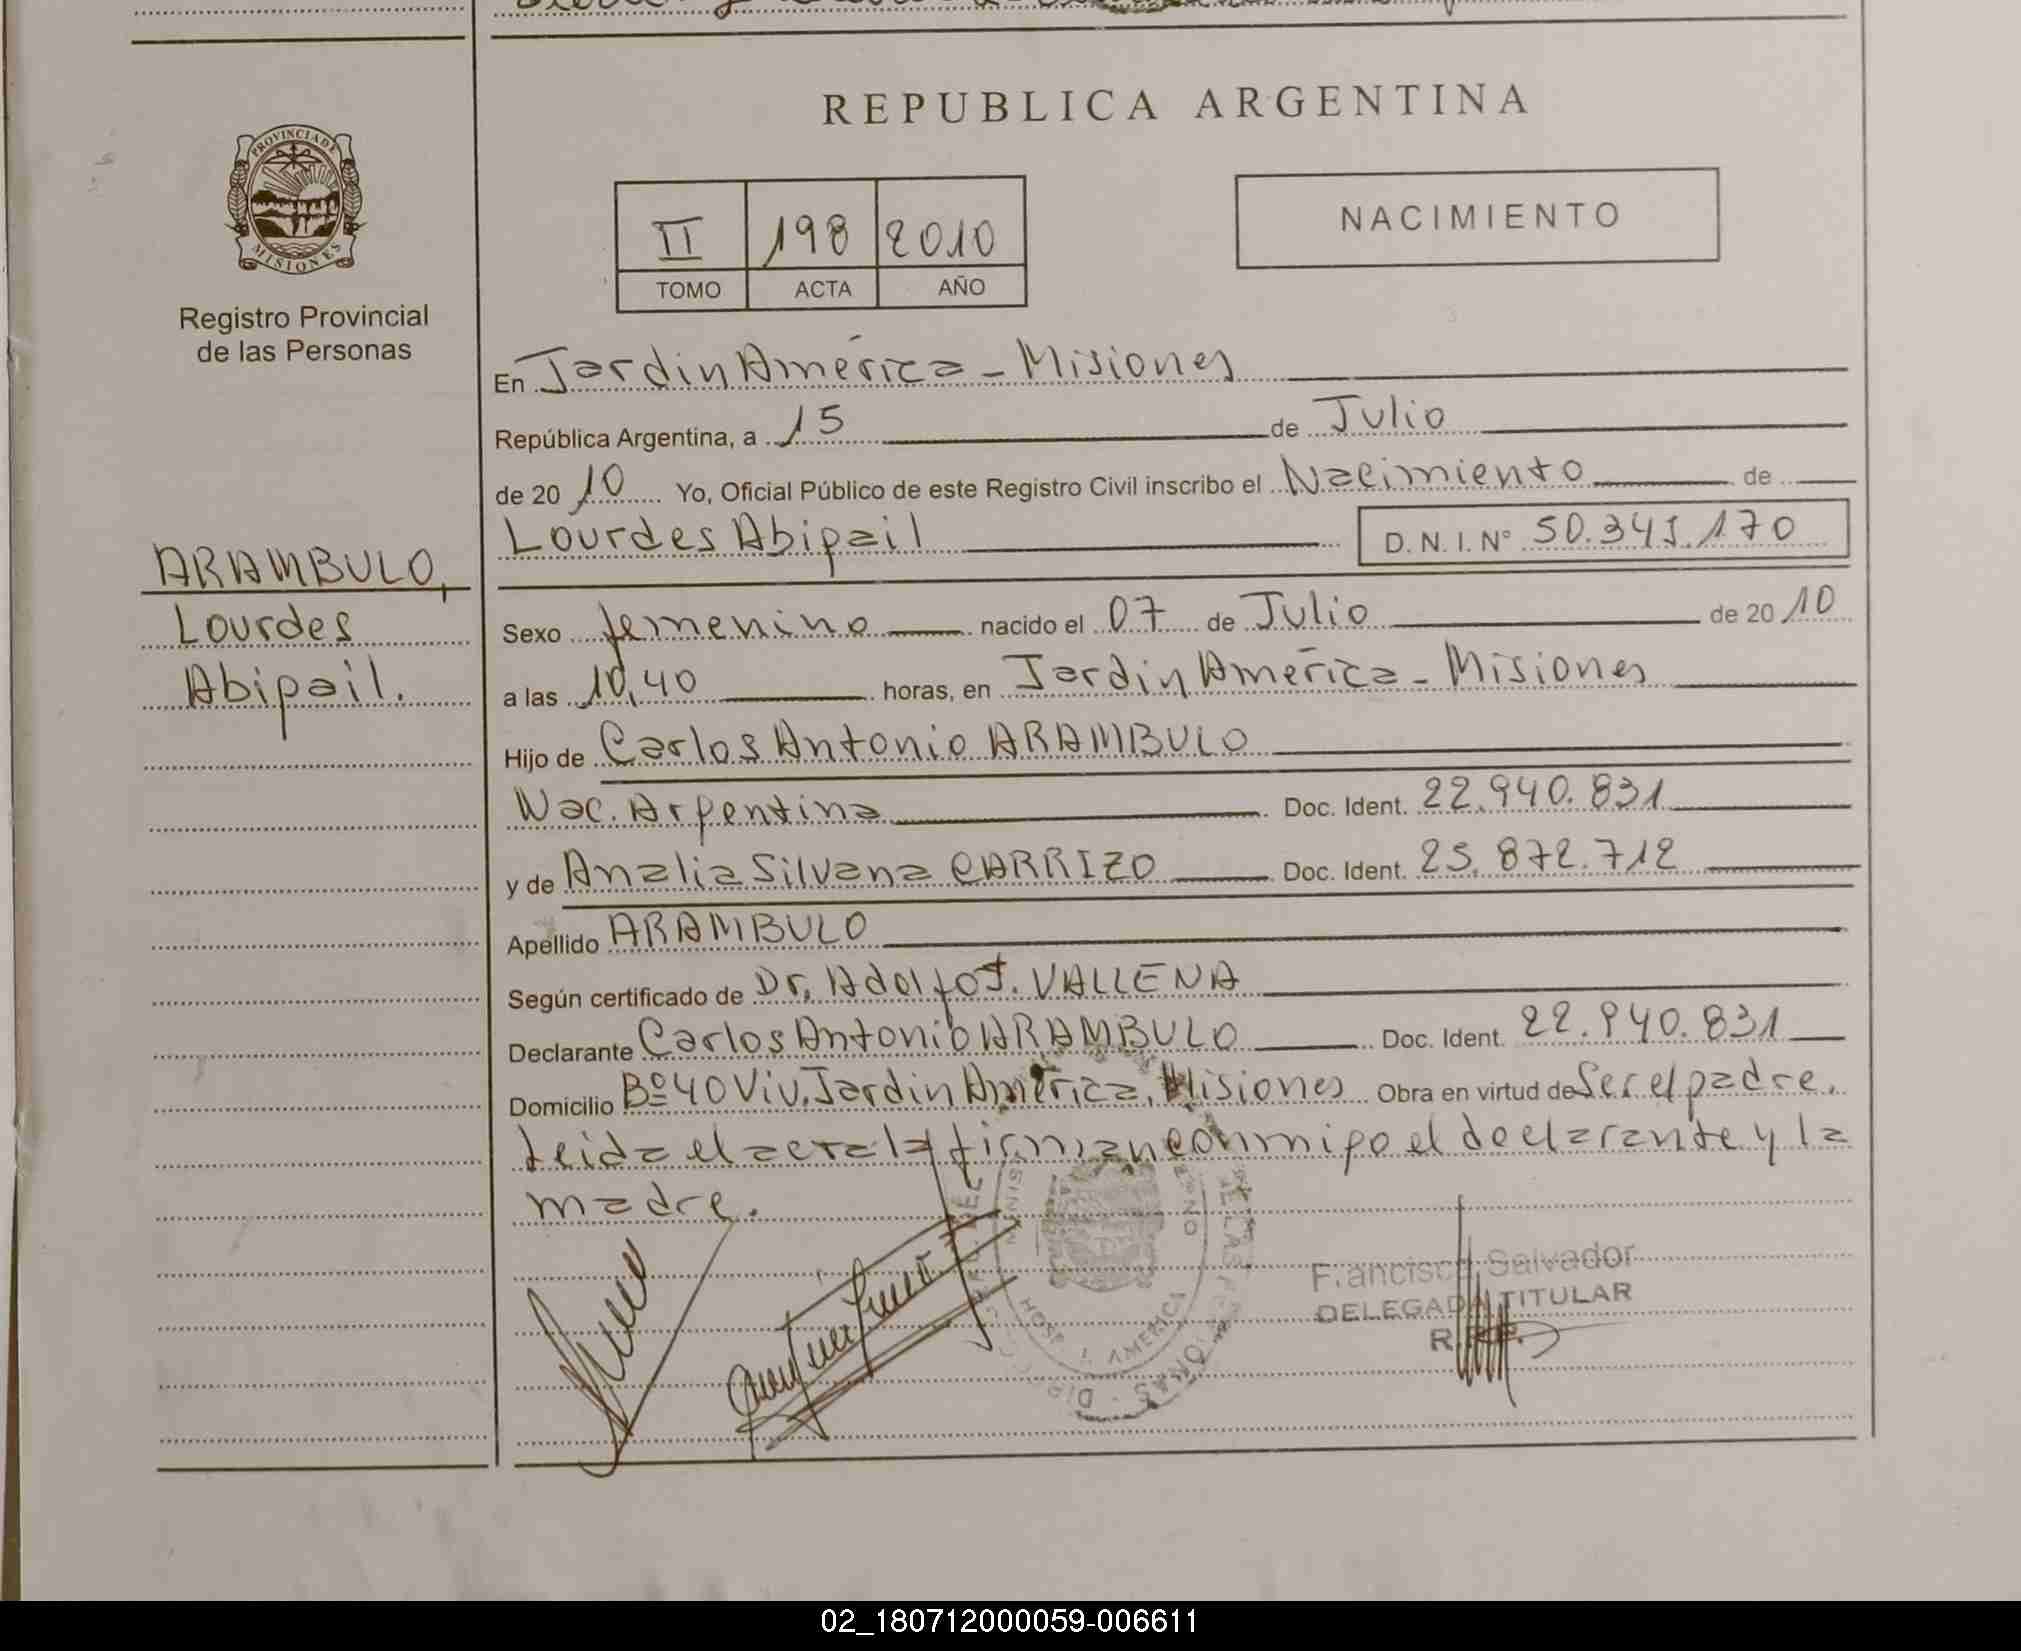 REPUBLICA ARGENTINA
PROVINCIA DE
MISIONES
Registro Provincial
de las Personas
II 198 2010
TOMO ACTA AÑO
NACIMIENTO
En Jardin América - Misiones
República Argentina, a 15 de Julio
de 20 10 Yo, Oficial Público de este Registro Civil inscribo el Nacimiento de
Lourdes Abigail D. N. I. N° 50.345.170
ARAMBULO,
Lourdes
Abigail.
Sexo femenino nacido el 07 de Julio de 20 10
a las 10,40 horas, en Jardin América - Misiones
Hijo de Carlos Antonio ARAMBULO
Nac. Argentina Doc. Ident. 22.940.831
y de Analia Silvana CARRIZO Doc. Ident. 25.872.712
Apellido ARAMBULO
Según certificado de Dr. Adolfo J. VALLENA
Declarante Carlos Antonio ARAMBULO Doc. Ident. 22.940.831
Domicilio Bº 40 Viv. Jardin América, Misiones Obra en virtud de Ser el padre.
Leida el acta la firman conmigo el declarante y la
madre.
Francisca Salvador
DELEGADA TITULAR
R.P.P.
02_180712000059-006611